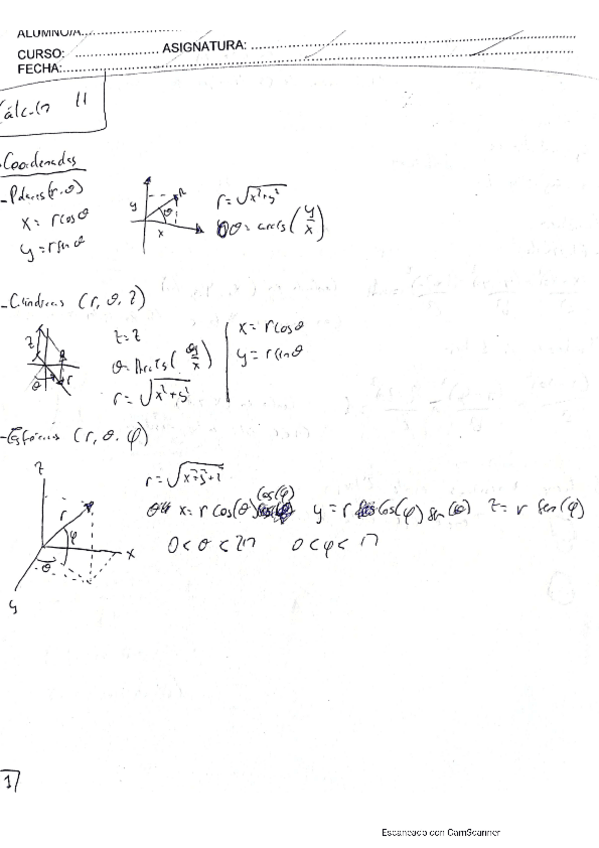 ALUMNO/A
CURSO: ASIGNATURA:
FECHA:
Cálculo II
Coordenadas
- Polares (r, θ)
x = r cos θ
y = r sen θ
y r θ x
r = √x²+y²
θ = arctg (y/x)
- Cilíndricas (r, θ, z)
z θ r
z = z
θ = Arctg (y/x)
r = √x²+y²
x = r cos θ
y = r sin θ
- Esféricas (r, θ, φ)
z r φ θ x y
r = √x²+y²+z²
x = r cos(θ) cos(φ) y = r cos(φ) sen(θ) z = r sen(φ)
0 < θ < 2π 0 < φ < π
1
Escaneado con CamScanner